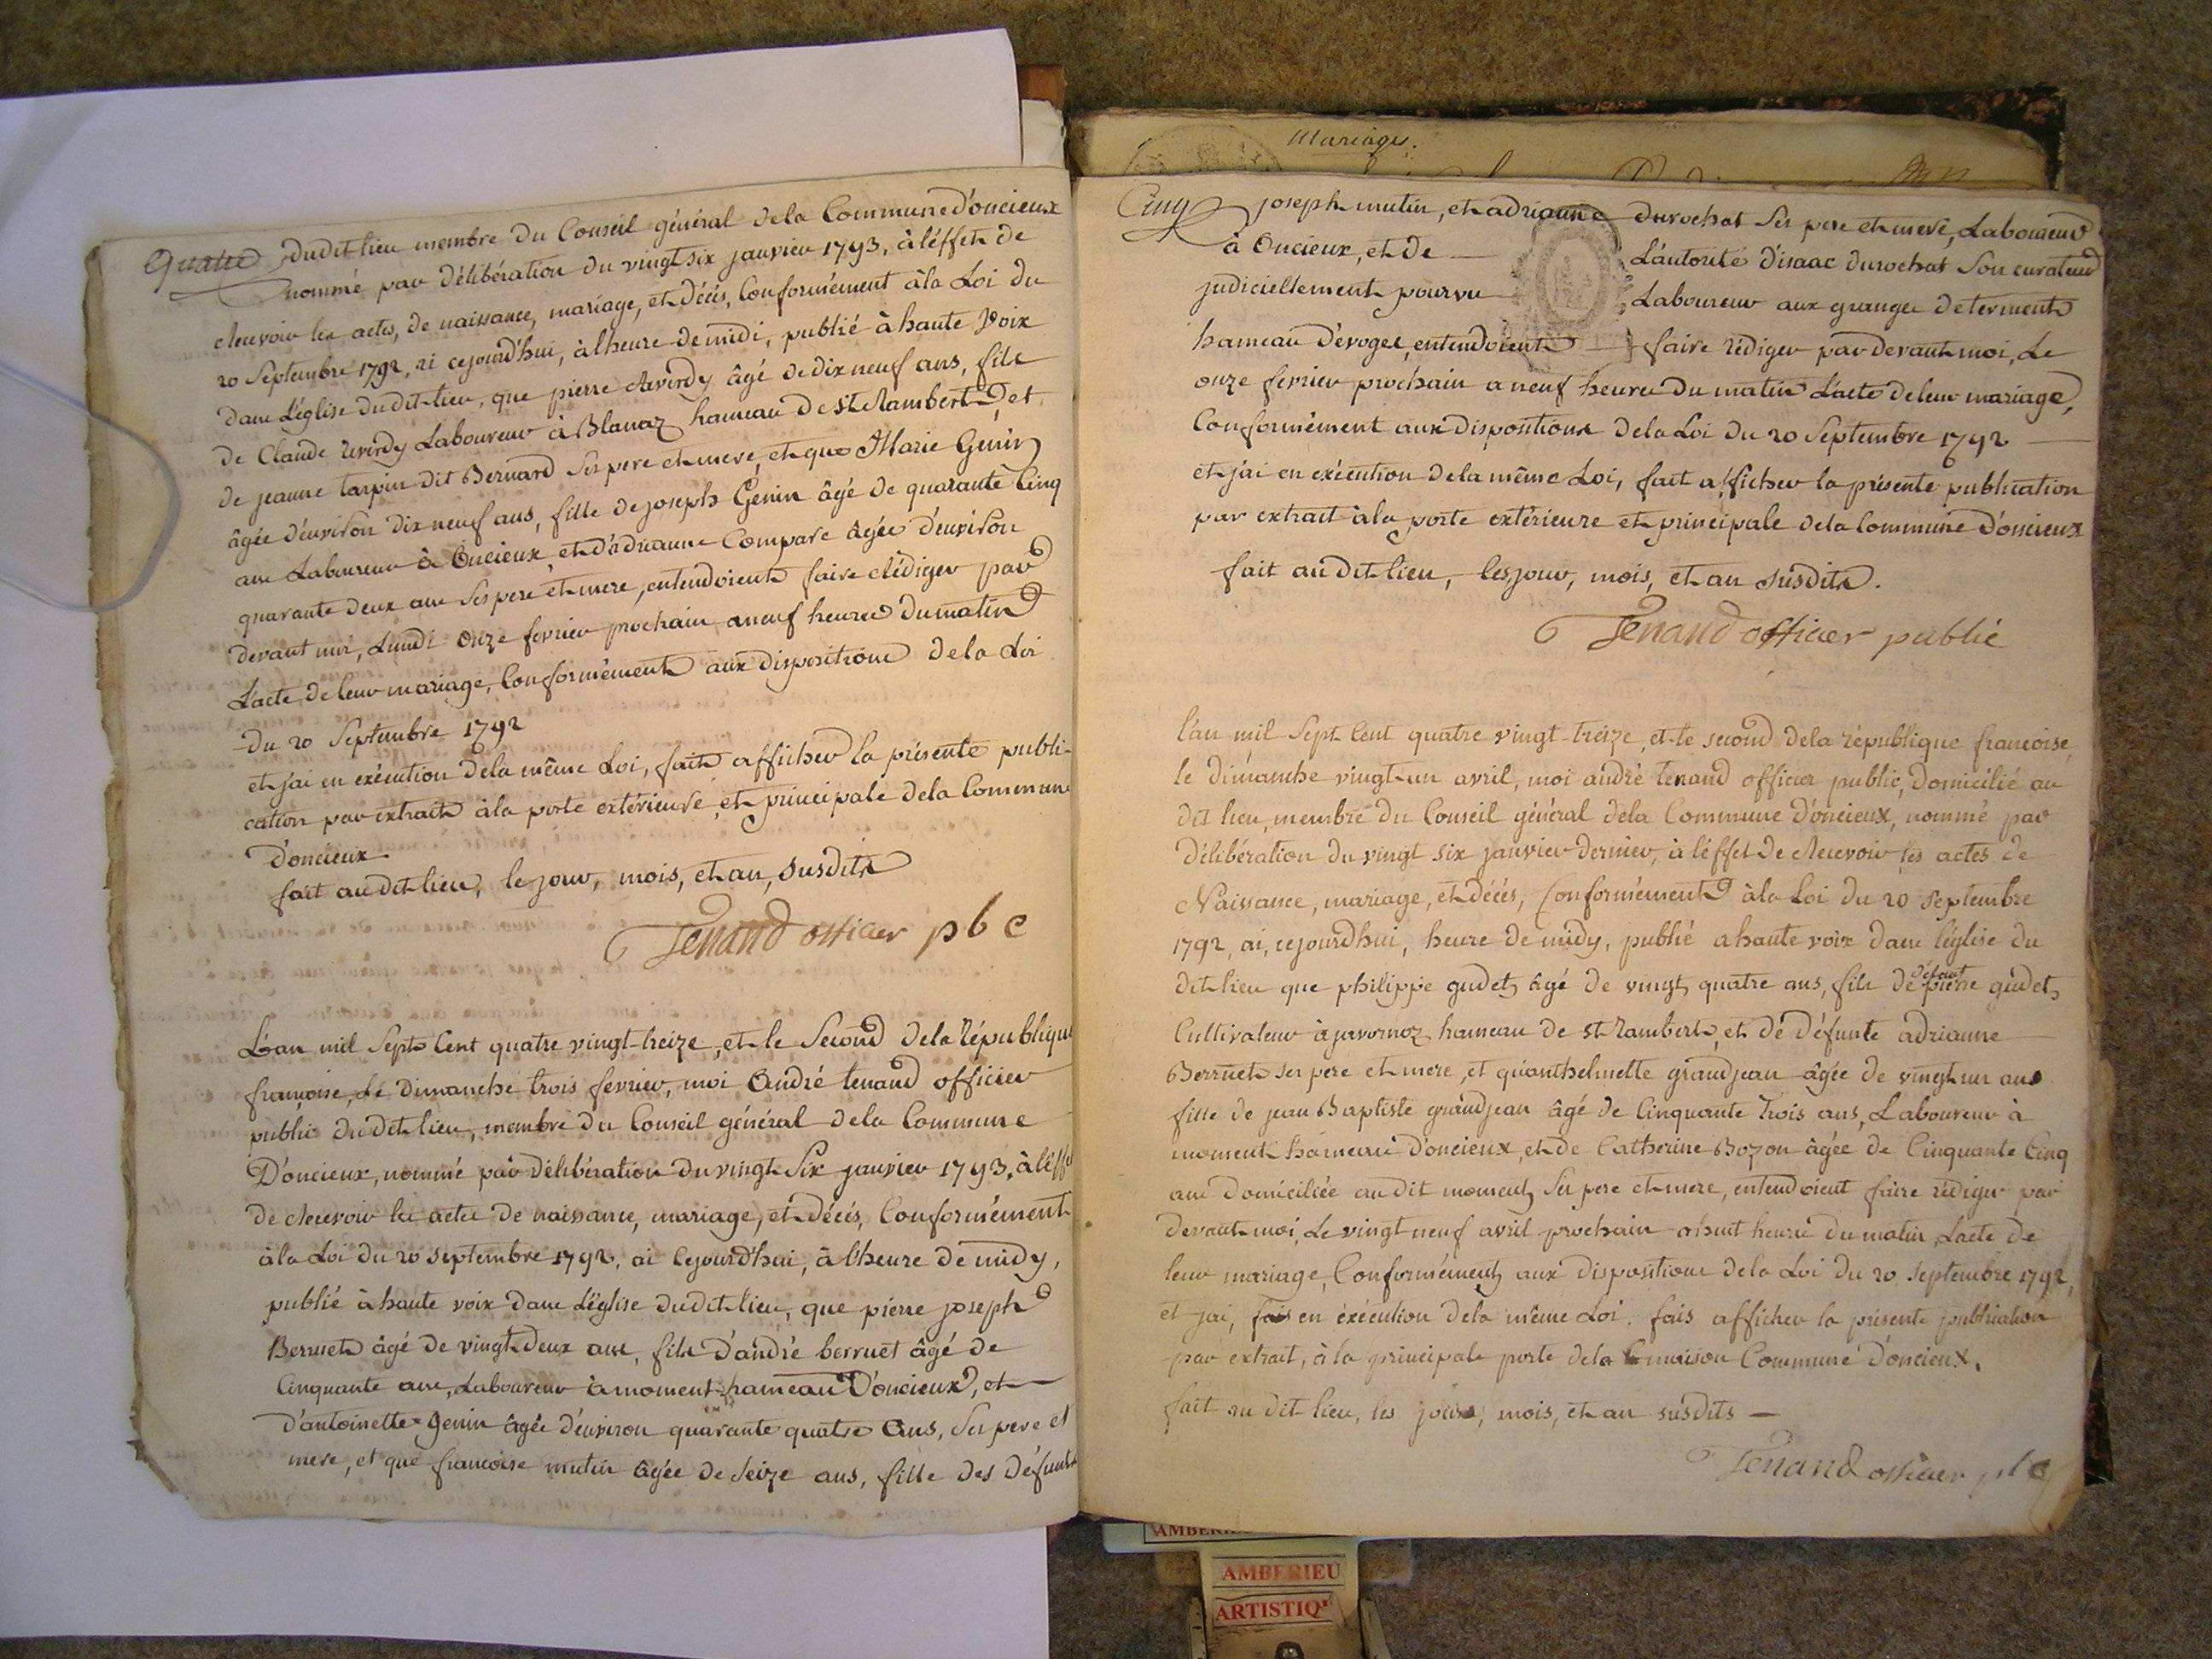 Quatre dudit lieu membre du Conseil général dela Commune d'oncieux
nommé par délibération du vingt six janvier 1793, à l'éffet de
recevoir les actes, de naissance, mariage, et décés, Conformément à la Loi du
20 Septembre 1792, ai cejourd'hui, à lheure de midi, publié à haute voix
dans L'église dudit lieu, que pierre Reverdy âgé de dix neuf ans, fils
de Claude Reverdy Laboureur à Blanaz hameau de st Rambert, et
de jeanne tarpin dit Bernard Ses pere et mere, et que Marie Genin
âgée d'environ dix neuf ans, fille de joseph Genin âgé de quarante Cinq
ans Laboureur à Oncieux, et d'adrianne Compare âgée d'environ
quarante deux ans Ses pere et mere, entendoient faire Rédiger par
devant moi, Lundi Onze fevrier prochain a neuf heures du matin
L'acte de leur mariage, Conformément aux dispositions dela Loi
du 20 Septembre 1792
et j'ai en exécution dela même Loi, fait afficher la présente publi-
cation par extrait à la porte extérieure, et principale dela Commune
D'oncieux
fait au dit lieu, le jour, mois, et an, susdits
Tenand officier pbc
L'an mil Sept Cent quatre vingt-treize, et le Second dela République
françoise, Le Dimanche trois fevrier, moi André tenand officier
public dudit lieu, membre du Conseil général dela Commune
D'oncieux, nommé par délibération du vingt Six janvier 1793, à l'éffet
de Recevoir les actes de naissance, mariage, et décés, Conformément
à la Loi du 20 septembre 1792, ai Cejourd'hui, à l'heure de midy,
publié à haute voix dans L'église dudit lieu, que pierre joseph
Berruet âgé de vingt deux ans, fils d'andré berruet âgé de
Cinquante ans, Laboureur à moment hameau D'oncieux, et
d'antoinette Genin âgée d'environ quarante quatre Ans, Ses pere et
mere, et que francoise mutin âgée de Seize ans, fille des défunts
Mariages.
Cinq joseph mutin, et adrianne durochat Ses pere et mere, Laboureur
à Oncieux, et de L'autorité d'isaac durochat Son curateur
judiciellement pourvu Laboureur aux granges de
hameau D'évoges, entendoient faire rédiger par devant moi, Le
onze fevrier prochain a neuf heures du matin L'acte de leur mariage,
Conformément aux dispositions dela Loi du 20 Septembre 1792
et j'ai en exécution dela même Loi, fait afficher la présente publication
par extrait à la porte extérieure et principale dela Commune D'oncieux
fait au dit lieu, les jour, mois, et an susdits.
Tenand officier publié
l'an mil Sept Cent quatre vingt-treize, et le second dela république francoise,
le dimanche vingt-un avril, moi andré tenand officier public, domicilié au
dit lieu, membre du Conseil général dela Commune D'oncieux, nommé par
délibération du vingt six janvier dernier, à l'éffet de Recevoir les actes de
Naissance, mariage, et décés, Conformément à la Loi du 20 septembre
1792, ai, cejourdhui, heure de midy, publié a haute voix dans l'église du
dit lieu que philippe gudet âgé de vingt quatre ans, fils de défunt pierre gudet,
Cultivateur à javornoz hameau de st Rambert, et de défunte adrianne
Berruet ses pere et mere, et qu'anthelmette grandjean âgée de vingt un ans
fille de jean Baptiste grandjean âgé de Cinquante trois ans, Laboureur à
moment hameau D'oncieux, et de Catherine Bozon âgée de Cinquante Cinq
ans domiciliée au dit moment, Ses pere et mere, entendoient faire rédiger par
devant moi, Le vingt neuf avril prochain a huit heures du matin, L'acte de
leur mariage, Conformément aux dispositions dela Loi du 20 septembre 1792,
et jai, en éxécution dela même Loi, fais afficher la présente publication
par extrait, à la principale porte dela maison Commune D'oncieux.
fait au dit lieu, les jours, mois, et an susdits —
Tenand officier pbc
AMBERIEU
AMBERIEU
ARTISTIQ